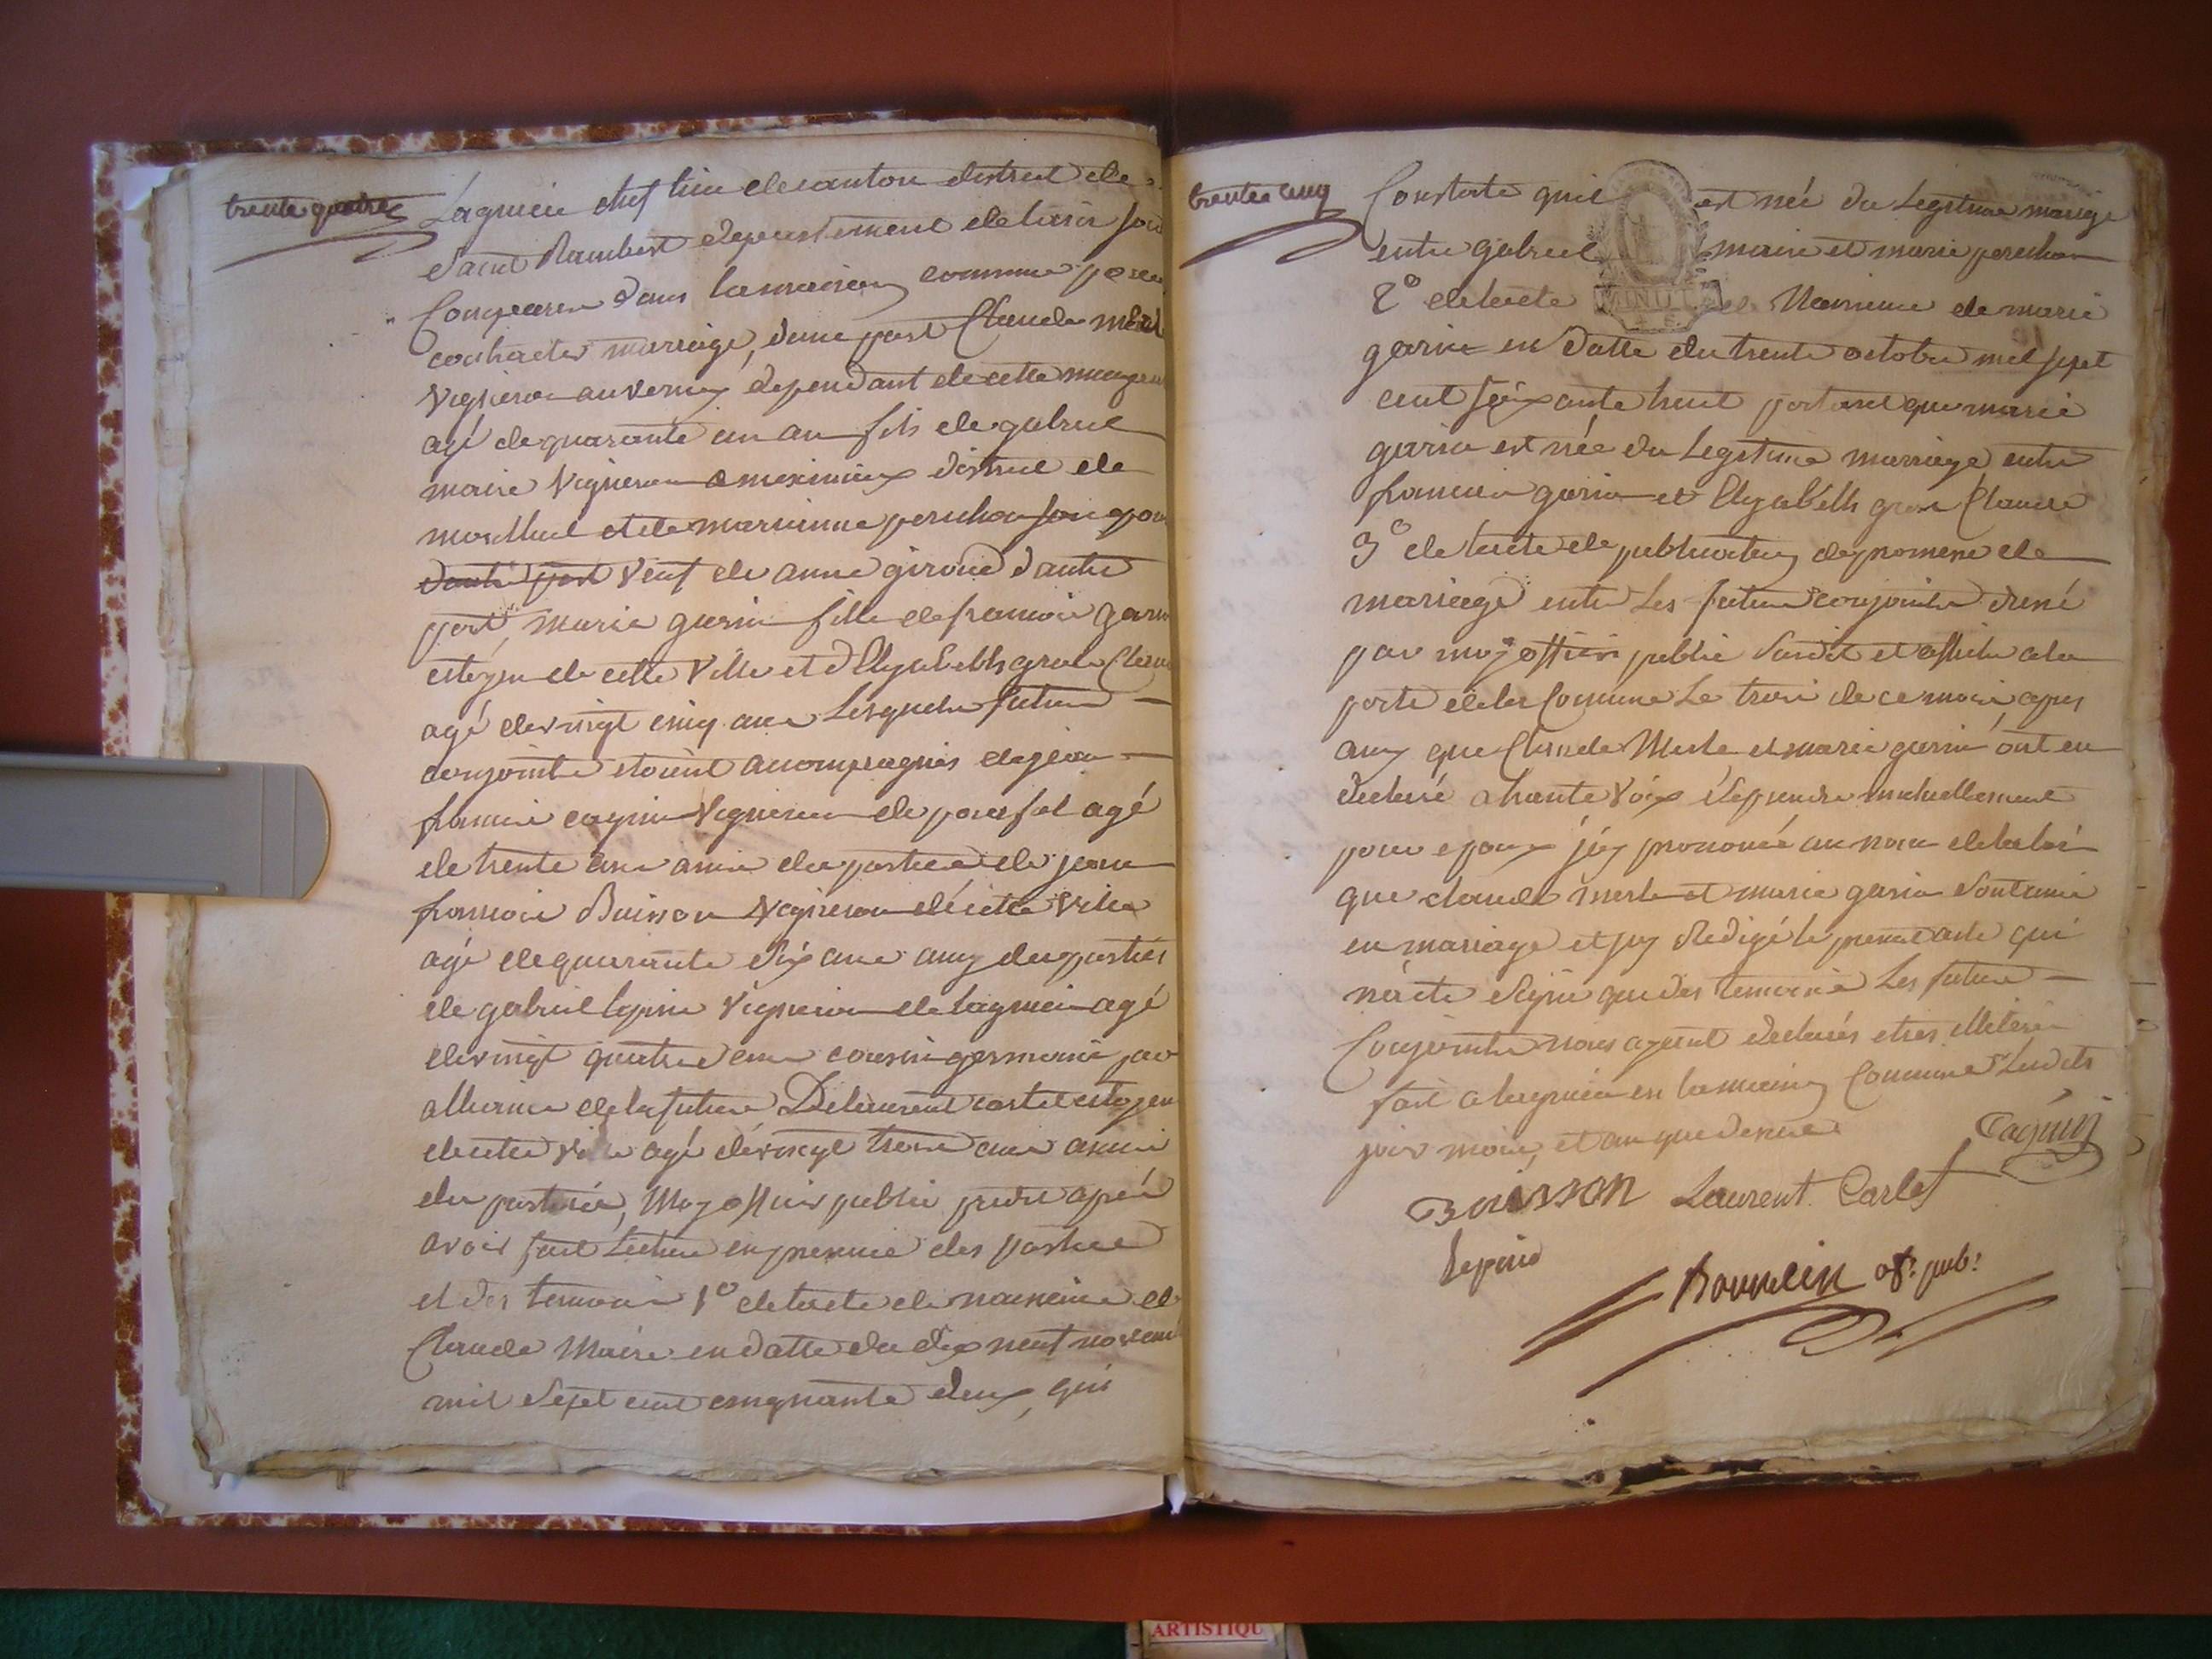 trente quatre
Lagnieu chef lieu de canton district de
Saint Rambert departement de lain sont
Comparu dans la maison commune pour
contracter mariage, dune part Claude merle
vigneron au vernay dependant de cette
agé de quarante un an fils de gabriel
maire vigneron a meximieux district de
montluel et de marianne peruchon
dautre part veuf de anne giroud dautre
part, marie garin fille de francois garin
citoyen de cette ville et d'Elyzabeth grose Claude
agé de vingt cinq ans Lesquels futurs
conjoints etoient accompagnés de jean
francois cagnin vigneron de agé
de trente ans amis des parties de jean
francois Buisson vigneron de cette ville
agé de quarante six ans amy des parties
de gabriel lepine vigneron de lagnieu agé
de vingt quatre ans cousin germain par
alliance de la future, De laurent carlet citoyen
de cette ville agé de vingt trois ans amis
des parties, Moy officier public susdit après
avoir fait lecture en presence des parties
et des temoins 1º de lacte de naissance de
Claude Maire en datte du dix neuf novembre
mil sept cent cinquante deux, qui
trente cinq
Constate quil est né du Legitime mariage
entre gabriel maire et marie peruchon
2º de lacte de Naissance de marie
garin en datte du trente octobre mil sept
cent soixante huit portant que marie
garin est née du Legitime mariage entre
francois garin et Elyzabeth grose Claude
3º de lacte de publication de promesse de
mariage entre Les futurs conjoints dressé
par moy officier public susdit et affiché a la
porte de la Commune Le trois de ce mois apres
aussy que Claude Merle et marie garin ont eu
declaré a haute voix de prendre mutuellement
pour epoux jay prononcé au nom de la loi
que claude merle et marie garin sont unis
en mariage et jay Redigé le present acte qui
na été signé que des temoins Les futurs
Conjoints nous ayant declarés etres illiterés
fait a lagnieu en la maison Commune Lesdits
jour mois, et an que dessus
Cagnin
Buisson Laurent Carlet
Lepine
Bonnelin of. pub.
MINUTE
ARTISTIQU